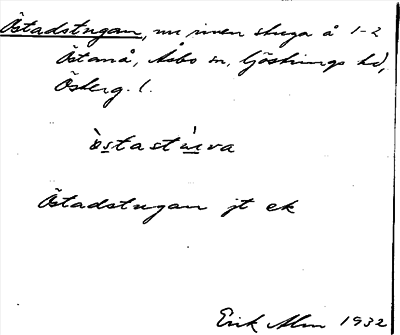 Östadstugan, nu riven stuga å 1-2
Östanå, Åsbo sn, Göstrings hd,
Österg. l.
östastu̇va
Östadstugan jt ek
Erik Alm 1932